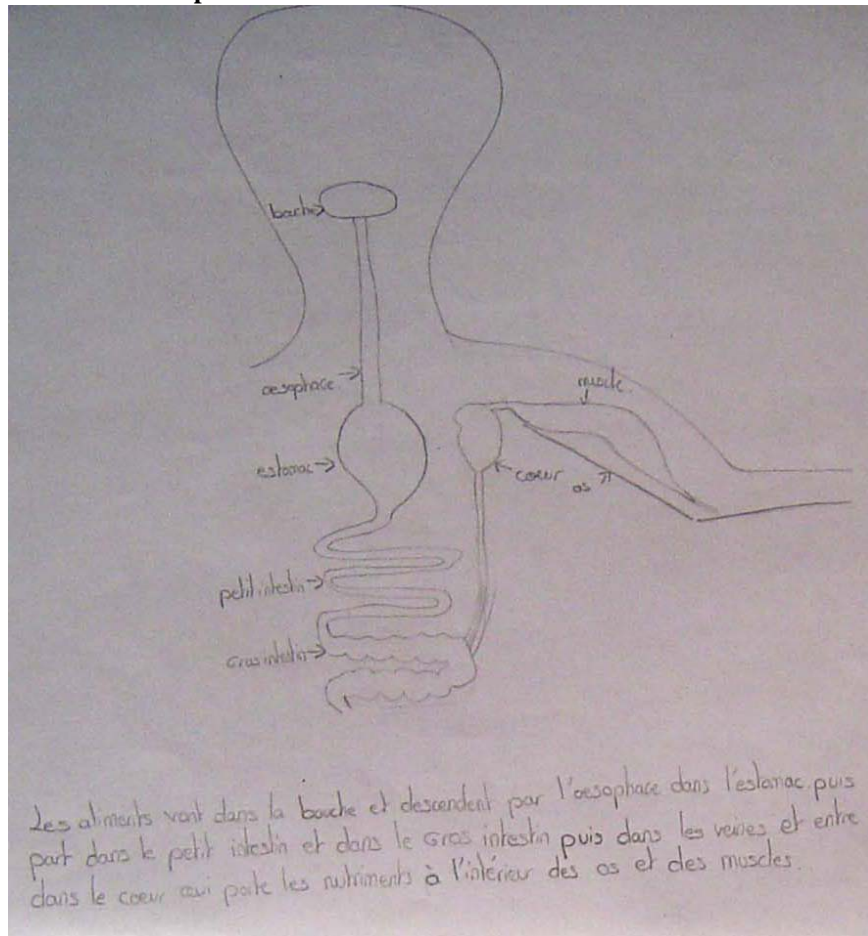 bouche
oesophace
muscle
estomac
coeur
os
petit intestin
Gros intestin
Les aliments vont dans la bouche et descendent par l'oesophace dans l'estomac puis
part dans le petit intestin et dans le Gros intestin puis dans les veines et entre
dans le coeur qui porte les nutriments à l'intérieur des os et des muscles.